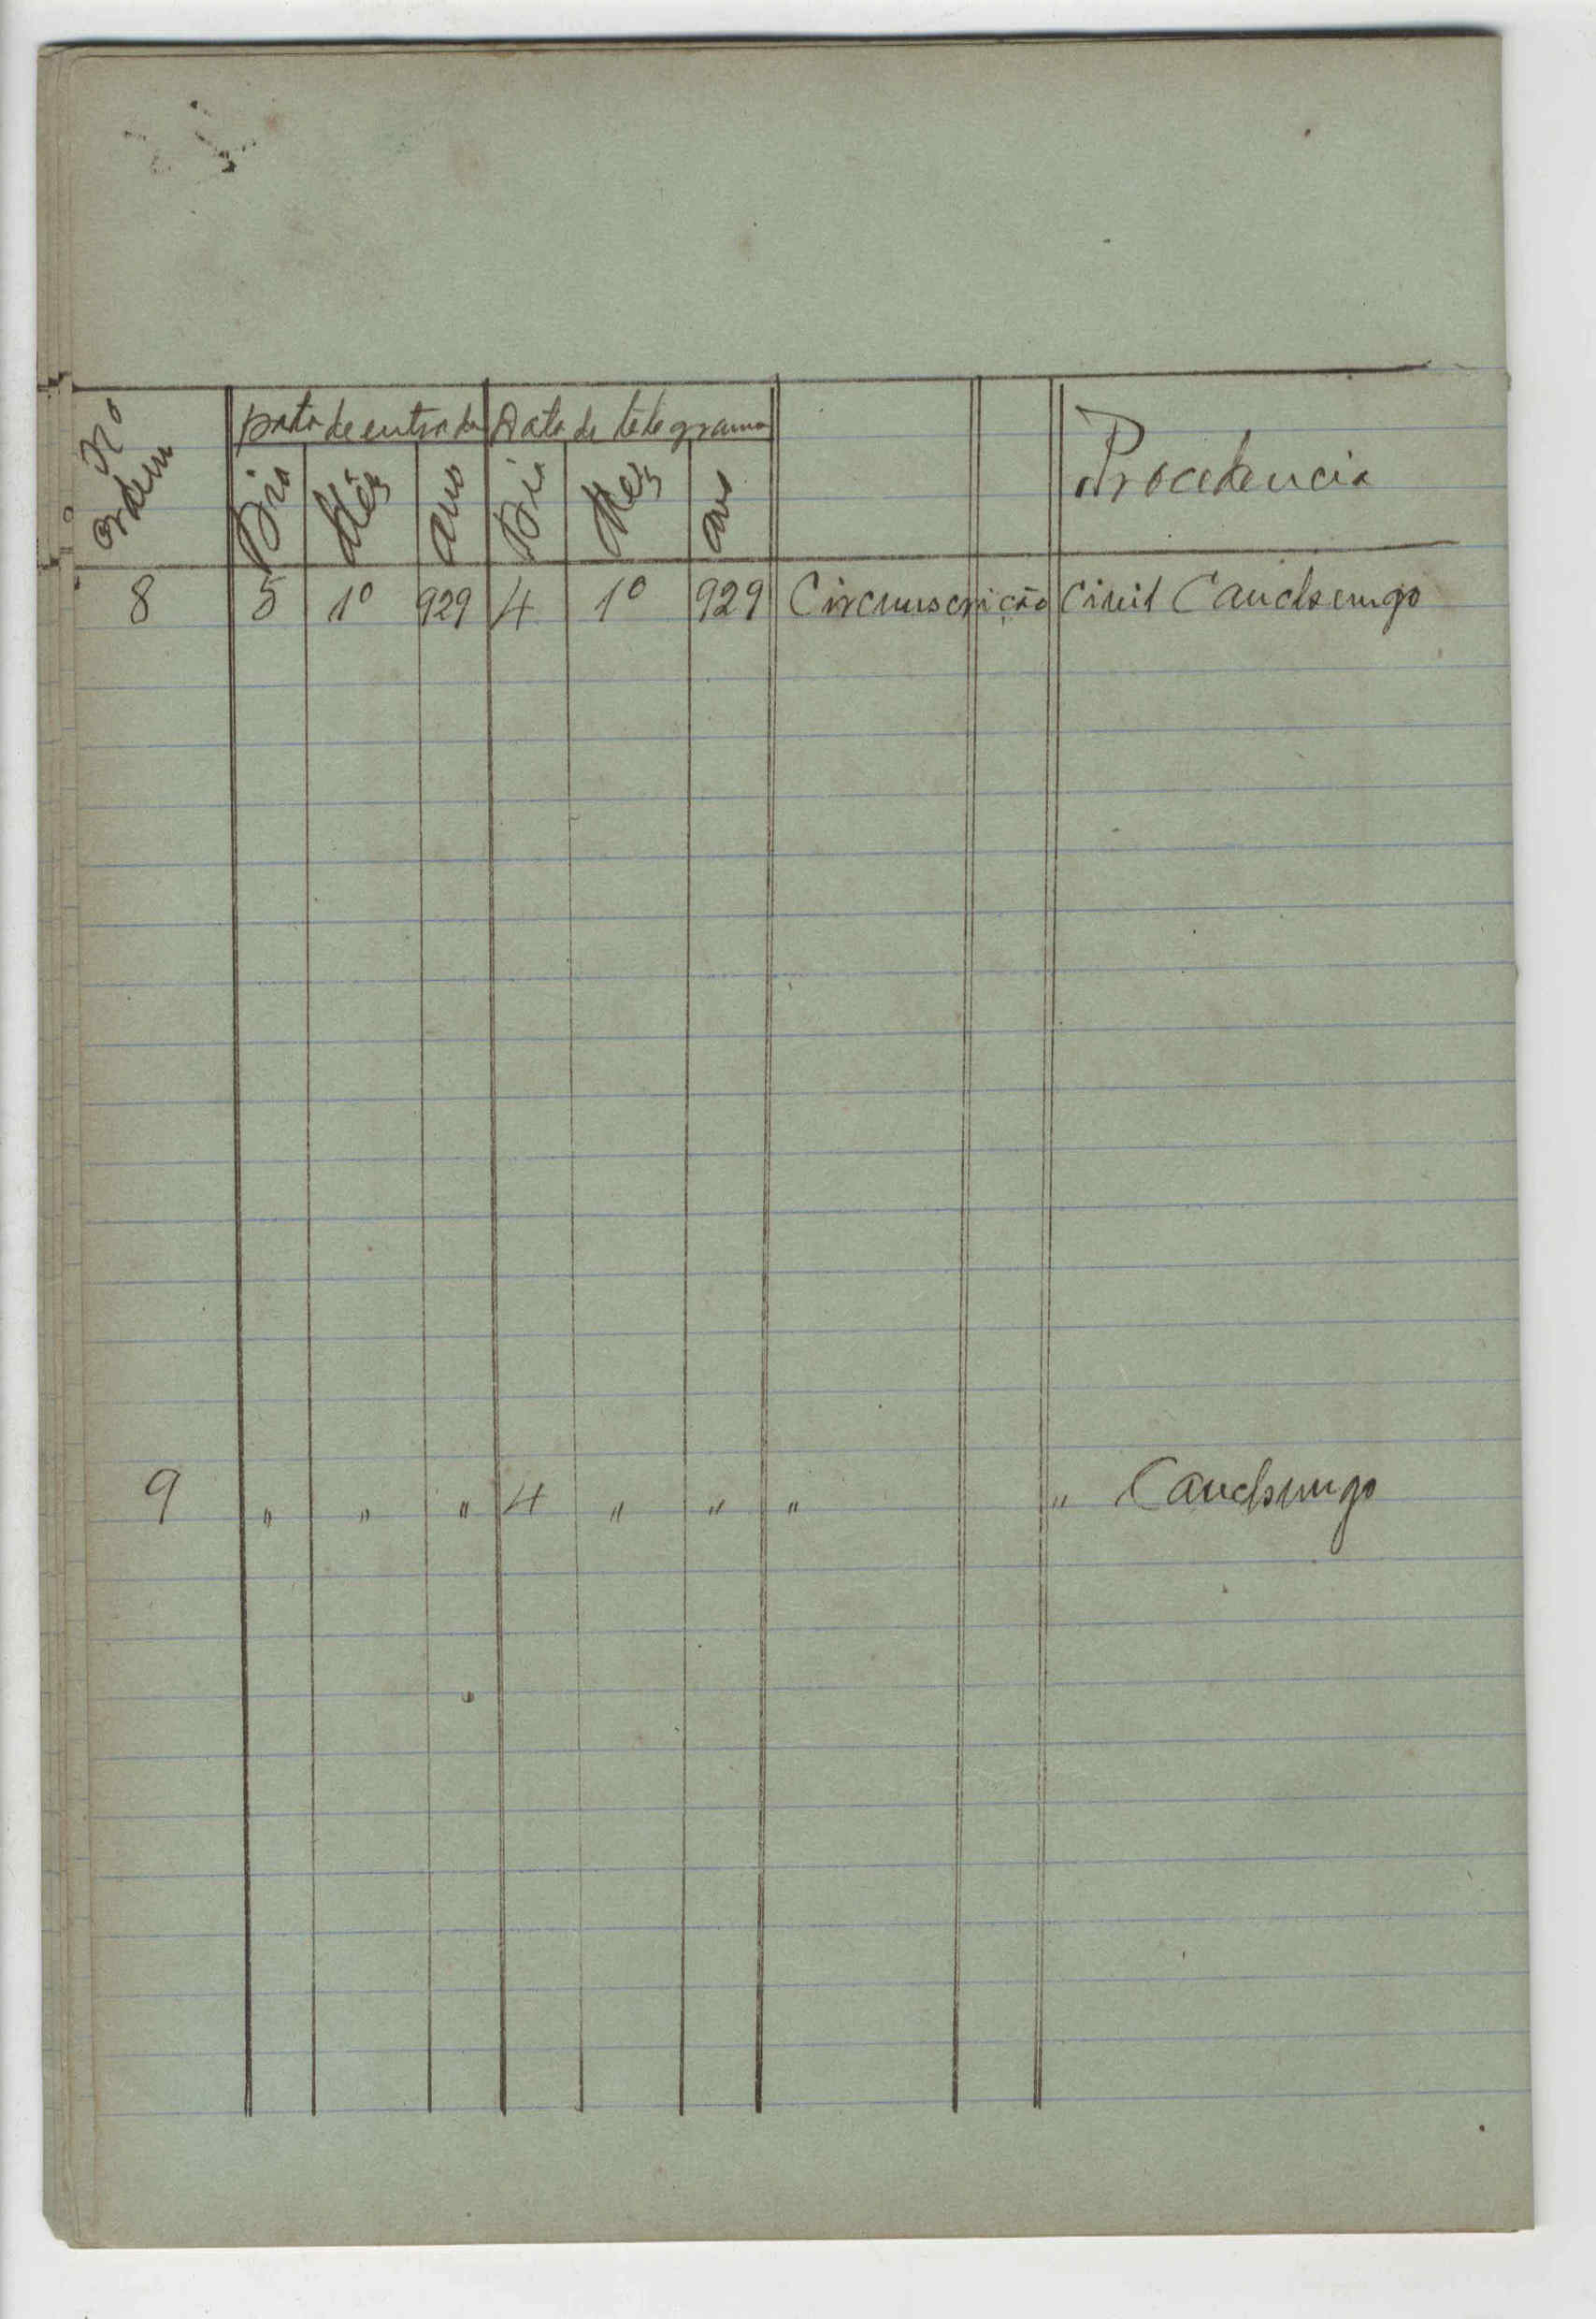 No ordem Data de entrada Data de telegrama Procedencia
Dia Mês Ano Dia Mês Ano
8 5 1º 929 4 1º 929 Circunscrição Civil Canchungo
9 " " " 4 " " " " Canchungo